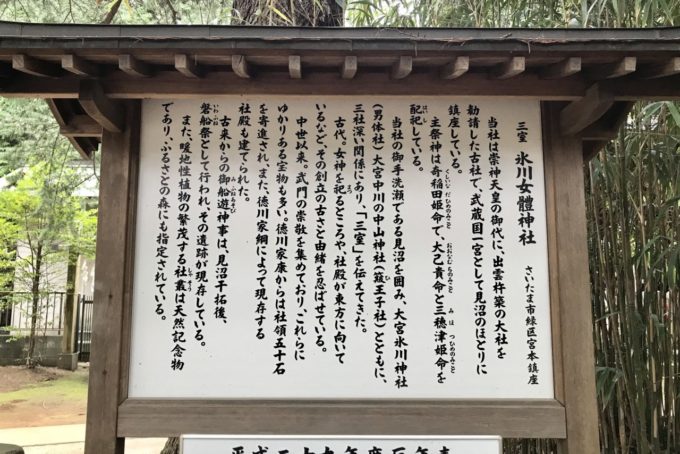 三室 氷川女體神社
さいたま市緑区宮本鎮座
当社は崇神天皇の御代に、出雲杵築の大社を
勧請した古社で、武蔵国一宮として見沼のほとりに
鎮座している。
主祭神は奇稲田姫命で、大己貴命と三穂津姫命を
配祀している。
当社の御手洗瀬である見沼を囲み、大宮氷川神社
(男体社)大宮中川の中山神社(簸王子社)とともに、
三社深い関係にあり、「三室」を伝えてきた。
古代。女神を祀るところや、社殿が東方に向いて
いるなど、その創立の古さと由緒を忍ばせている。
中世以来。武門の崇敬を集めており、これらに
ゆかりある宝物も多い。徳川家康からは社領五十石
を寄進され、また、徳川家綱によって現存する
社殿も建てられた。
古来からの御船遊神事は、見沼干拓後、
磐船祭として行われ、その遺跡が現存している。
また、暖地性植物の繁茂する社叢は天然記念物
であり、ふるさとの森にも指定されている。